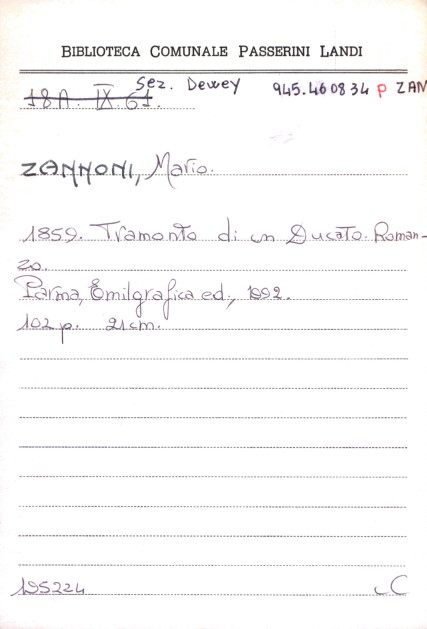 BIBLIOTECA COMUNALE PASSERINI LANDI
Sez. Dewey 945.460834 p ZAN
18A. IX. 61.
ZANNONI, Mario.
1859. Tramonto di un Ducato. Roman-
zo.
Parma, Emilgrafica ed., 1992.
102 p. 21 cm.
195224 CC